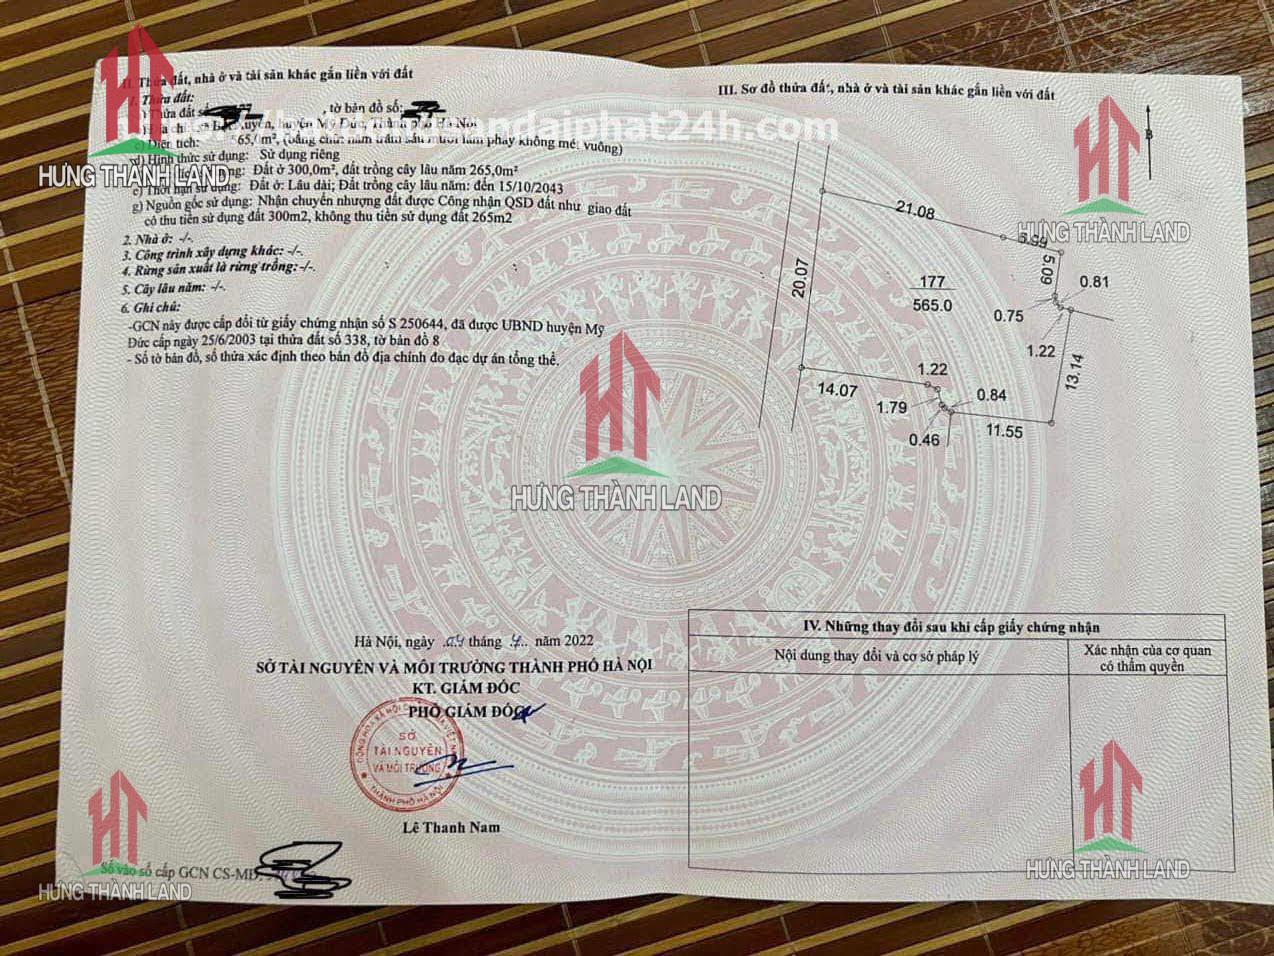 II. Thửa đất, nhà ở và tài sản khác gắn liền với đất
1. Thửa đất:
Thửa đất số , tờ bản đồ số:
huyện Mỹ Đức, Thành phố Hà Nội
c) Diện tích: 565,0m², (bằng chữ: năm trăm sáu mươi lăm phảy không mét vuông)
d) Hình thức sử dụng: Sử dụng riêng
Đất ở 300,0m², đất trồng cây lâu năm 265,0m²
e) Thời hạn sử dụng: Đất ở: Lâu dài; Đất trồng cây lâu năm: đến 15/10/2043
g) Nguồn gốc sử dụng: Nhận chuyển nhượng đất được Công nhận QSD đất như giao đất
có thu tiền sử dụng đất 300m2, không thu tiền sử dụng đất 265m2
2. Nhà ở: -/-.
3. Công trình xây dựng khác: -/-.
4. Rừng sản xuất là rừng trồng: -/-.
5. Cây lâu năm: -/-.
6. Ghi chú:
-GCN này được cấp đổi từ giấy chứng nhận số S 250644, đã được UBND huyện Mỹ
Đức cấp ngày 25/6/2003 tại thửa đất số 338, tờ bản đồ 8
- Số tờ bản đồ, số thửa xác định theo bản đồ địa chính đo đạc dự án tổng thể.
Hà Nội, ngày 04 tháng 7 năm 2022
SỞ TÀI NGUYÊN VÀ MÔI TRƯỜNG THÀNH PHỐ HÀ NỘI
KT. GIÁM ĐỐC
PHÓ GIÁM ĐỐC
SỞ
TÀI NGUYÊN
VÀ MÔI TRƯỜNG
THÀNH PHỐ HÀ NỘI
Lê Thanh Nam
Số vào sổ cấp GCN CS-MĐ:
III. Sơ đồ thửa đất, nhà ở và tài sản khác gắn liền với đất
B
21.08
6.99
5.09
0.81
20.07
177
565.0
0.75
1.22
13.14
14.07
1.22
1.79
0.84
0.46
11.55
IV. Những thay đổi sau khi cấp giấy chứng nhận
Nội dung thay đổi và cơ sở pháp lý
Xác nhận của cơ quan
có thẩm quyền
HƯNG THÀNH LAND
HƯNG THÀNH LAND
HƯNG THÀNH LAND
HƯNG THÀNH LAND
HƯNG THÀNH LAND